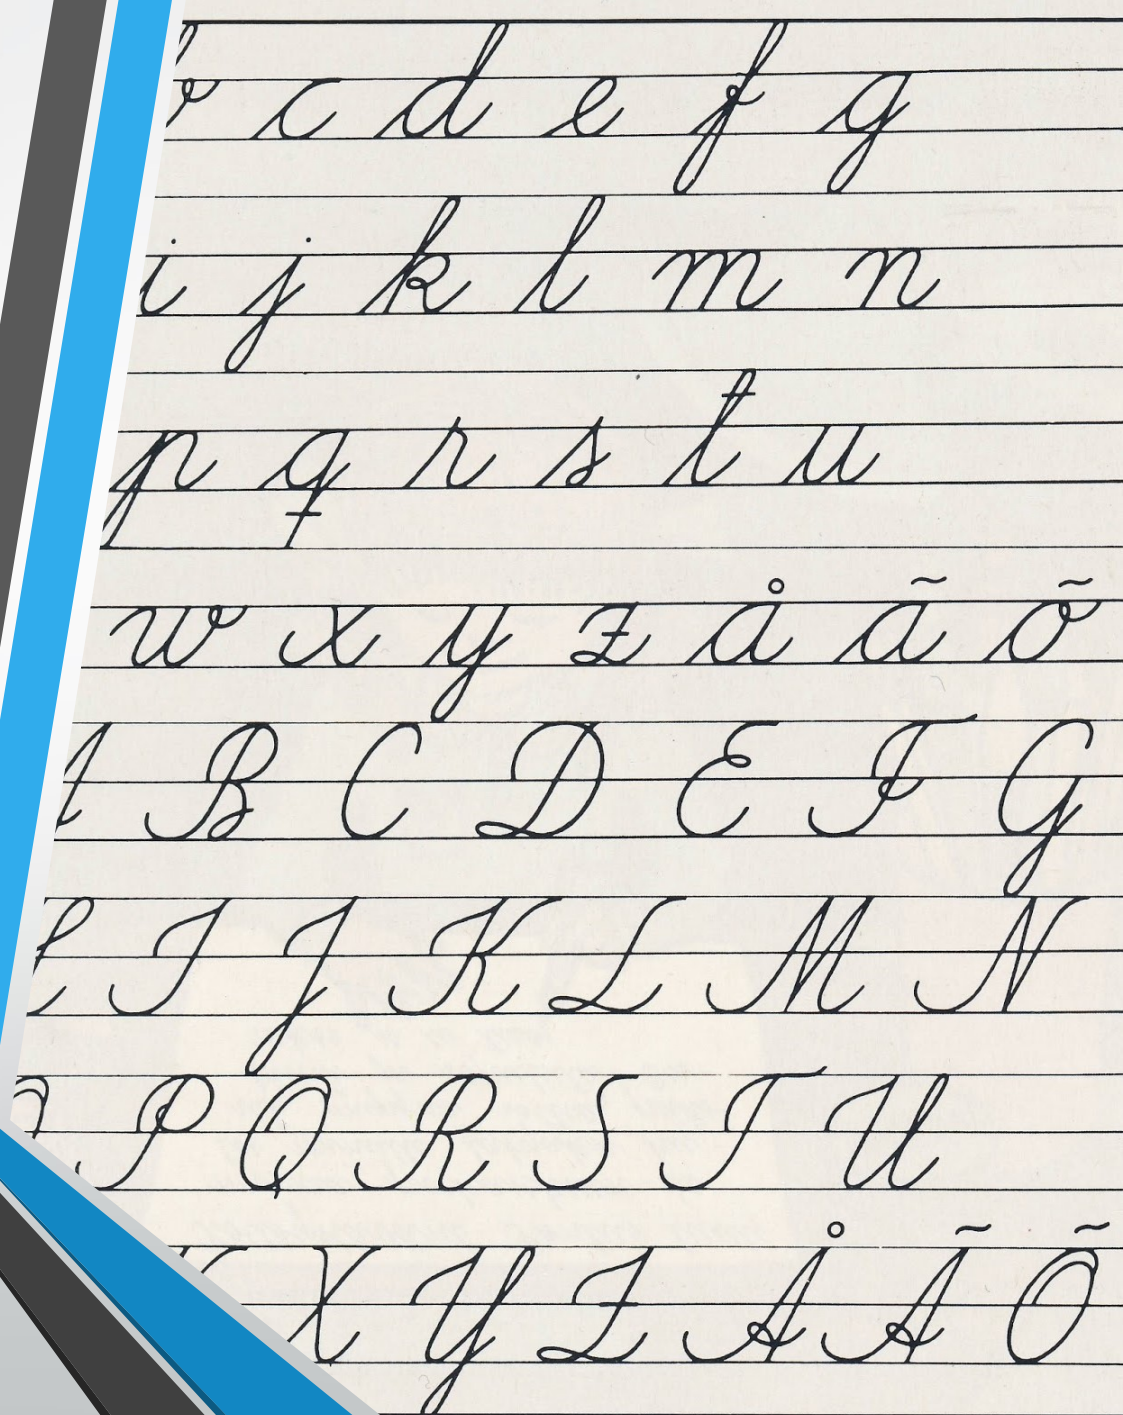 b c d e f g
i j k l m n
p q r s t u
w x y z å ã õ
A B C D E F G
I J K L M N
P Q R S T U
X Y Z Å Ã Õ